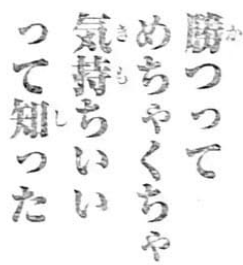 勝つって
めちゃくちゃ
気持ちいい
って知った